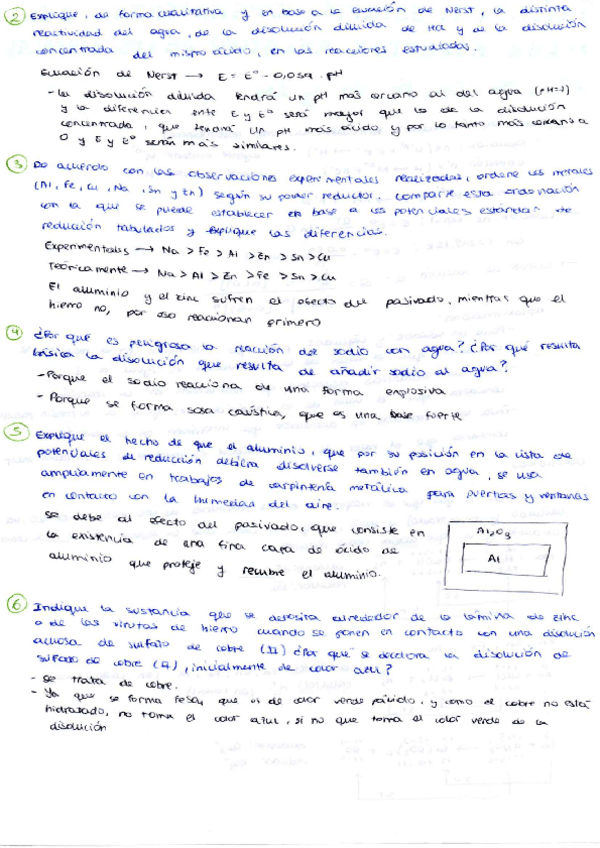 ② Explique, de forma cualitativa y en base a la ecuación de Nerst, la distinta
reactividad del agua, de la disolución diluida de HCl y de la disolución
concentrada del mismo ácido, en las reacciones estudiadas.
Ecuación de Nerst → E = E° - 0,059 · pH
- La disolución diluida tendrá un pH más cercano al del agua (pH=7)
y la diferencia ente E y E° será mayor que la de la disolución
concentrada, que tendrá un pH más ácido y por lo tanto más cercano a
0 y E y E° serán más similares.
③ De acuerdo con las observaciones experimentales realizadas, ordene los metales
(Al, Fe, Cu, Na, Sn y Zn) según su poder reductor. Compare esta ordenación
con la que se puede establecer en base a los potenciales estándar de
reducción tabulados y explique las diferencias.
Experimentales → Na > Fe > Al > Zn > Sn > Cu
Teóricamente → Na > Al > Zn > Fe > Sn > Cu
El aluminio y el zinc sufren el efecto del pasivado, mientras que el
hierro no, por eso reaccionan primero
④ ¿Por qué es peligrosa la reacción del sodio con agua? ¿Por qué resulta
básica la disolución que resulta de añadir sodio al agua?
- Porque el sodio reacciona de una forma explosiva
- Porque se forma sosa caústica, que es una base fuerte
⑤ Explique el hecho de que el aluminio, que por su posición en la lista de
potenciales de reducción debiera disolverse también en agua, se usa
ampliamente en trabajos de carpintería metálica para puertas y ventanas
en contacto con la humedad del aire.
Se debe al efecto del pasivado, que consiste en
la existencia de una fina capa de óxido de
aluminio que proteje y recubre el aluminio.
Al₂O₃
Al
⑥ Indique la sustancia que se deposita alrededor de la lámina de zinc
o de las virutas de hierro cuando se ponen en contacto con una disolución
acuosa de sulfato de cobre (II) ¿Por qué se decolora la disolución de
sulfato de cobre (II), inicialmente de color azul?
- Se trata de cobre.
- Ya que se forma FeSO₄ que es de color verde pálido, y como el cobre no está
hidratado, no toma el color azul, si no que toma el color verde de la
disolución